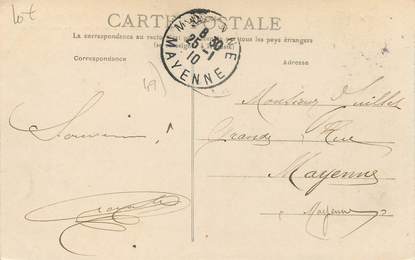 lot
CARTE POSTALE
La correspondance au recto
tous les pays étrangers
Correspondance
Adresse
MAYENNE
8
25 -1
10
MAYENNE
Souvenir !
Monsieur Juillet
Grande Rue
Mayenne
Mayenne